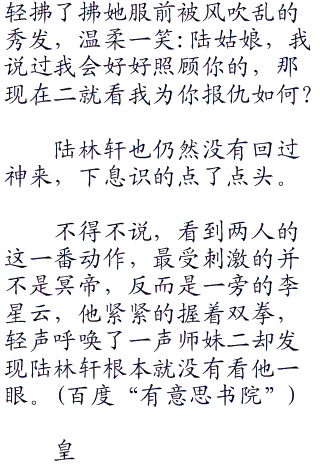 轻拂了拂她服前被风吹乱的
秀发，温柔一笑:陆姑娘，我
说过我会好好照顾你的，那
现在二就看我为你报仇如何？
陆林轩也仍然没有回过
神来，下息识的点了点头。
不得不说，看到两人的
这一番动作，最受刺激的并
不是冥帝，反而是一旁的李
星云，他紧紧的握着双拳，
轻声呼唤了一声师妹二却发
现陆林轩根本就没有看他一
眼。(百度“有意思书院”)
皇